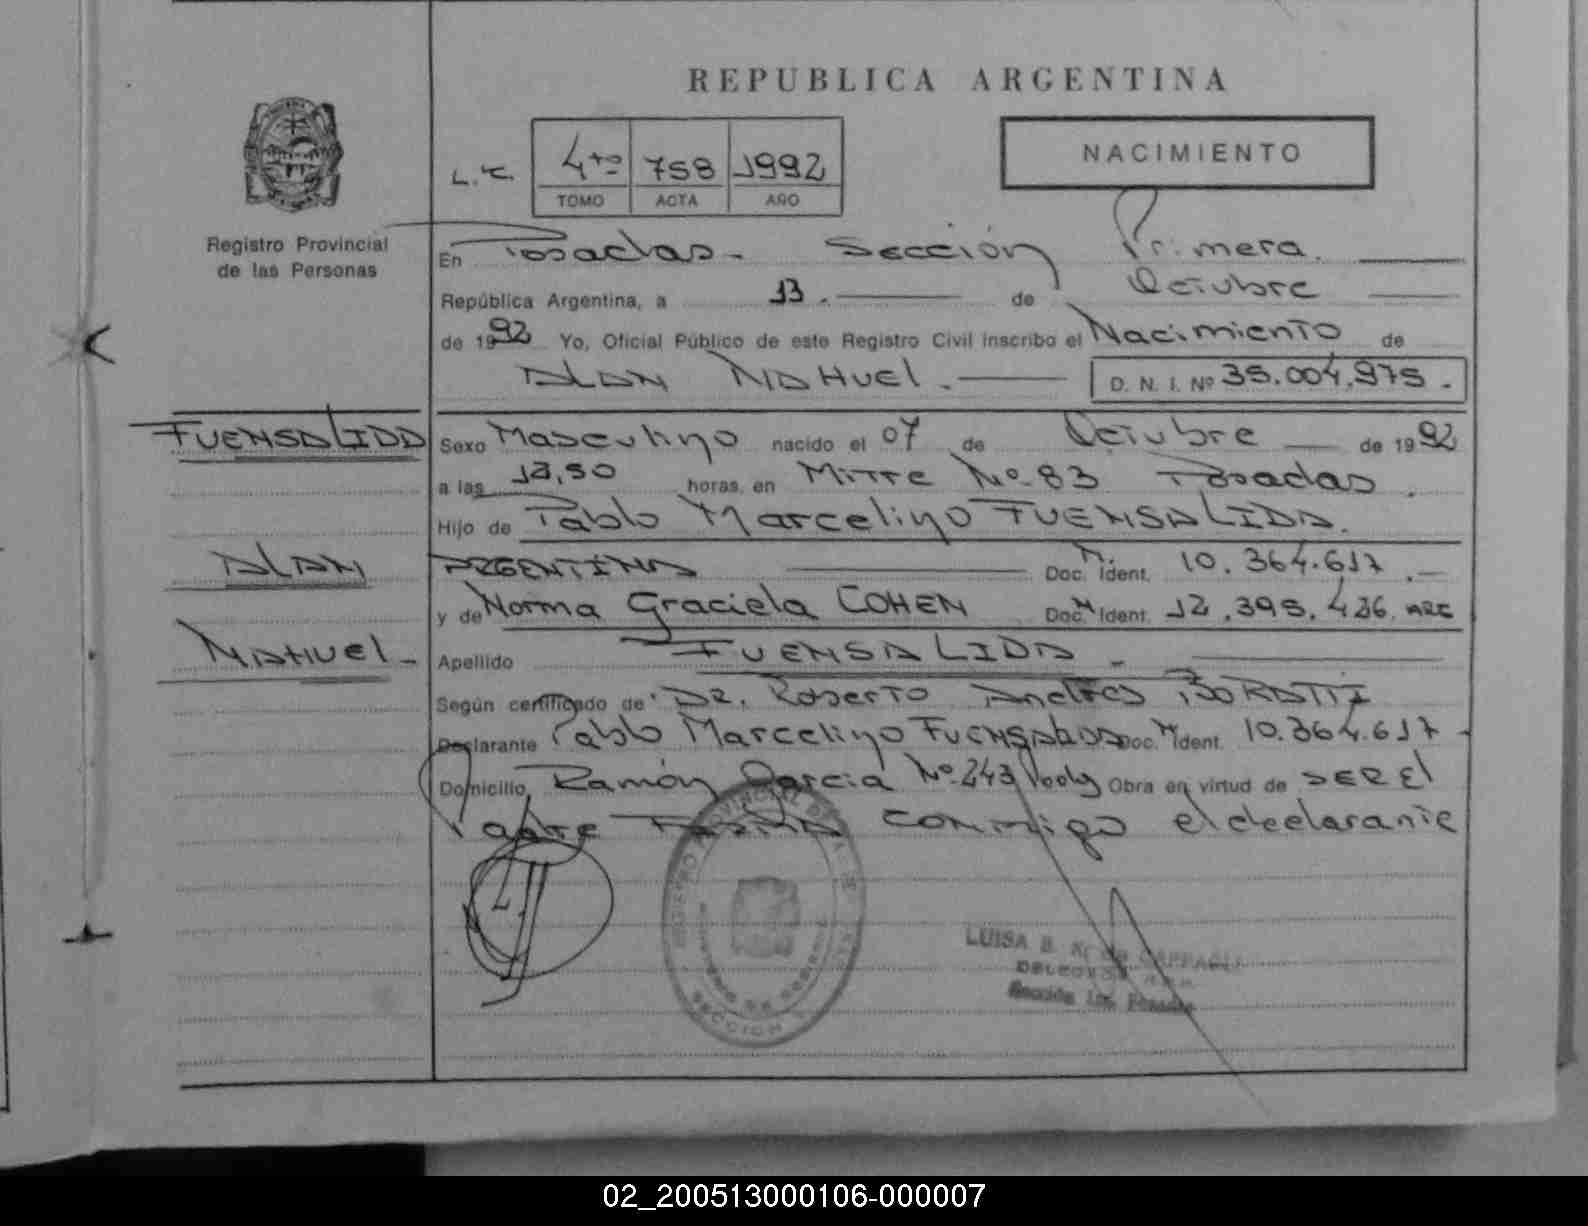 REPUBLICA ARGENTINA
NACIMIENTO
L.C. 4to 758 1992
TOMO ACTA AÑO
Registro Provincial
de las Personas
En Posadas - Sección Primera.
República Argentina, a 13. de Octubre
de 1992 Yo, Oficial Público de este Registro Civil inscribo el Nacimiento de
ALAN NAHUEL. D. N. I. Nº 35.004.975.
FUENSALIDA
Sexo Masculino nacido el 07 de Octubre de 1992
a las horas, en Mitre Nº 83 Posadas.
Hijo de Pablo Marcelino FUENSALIDA.
ALAN
ARGENTINA Doc. M. Ident. 10.364.617.-
y de Norma Graciela COHEN Doc. M Ident. 12.395.426. ARG
NAHUEL-
Apellido FUENSALIDA-
Según certificado de DR. Roberto Andrés BORATTI
Declarante Pablo Marcelino FUENSALIDA Doc. M Ident. 10.364.617-
Domicilio Ramón Garcia Nº 243 Obra en virtud de SER El
Padre FIRMA conmigo el declarante
REGISTRO PROVINCIAL DE LAS
SECCION
LUISA B.
Sección 1ra. Posadas
02_200513000106-000007